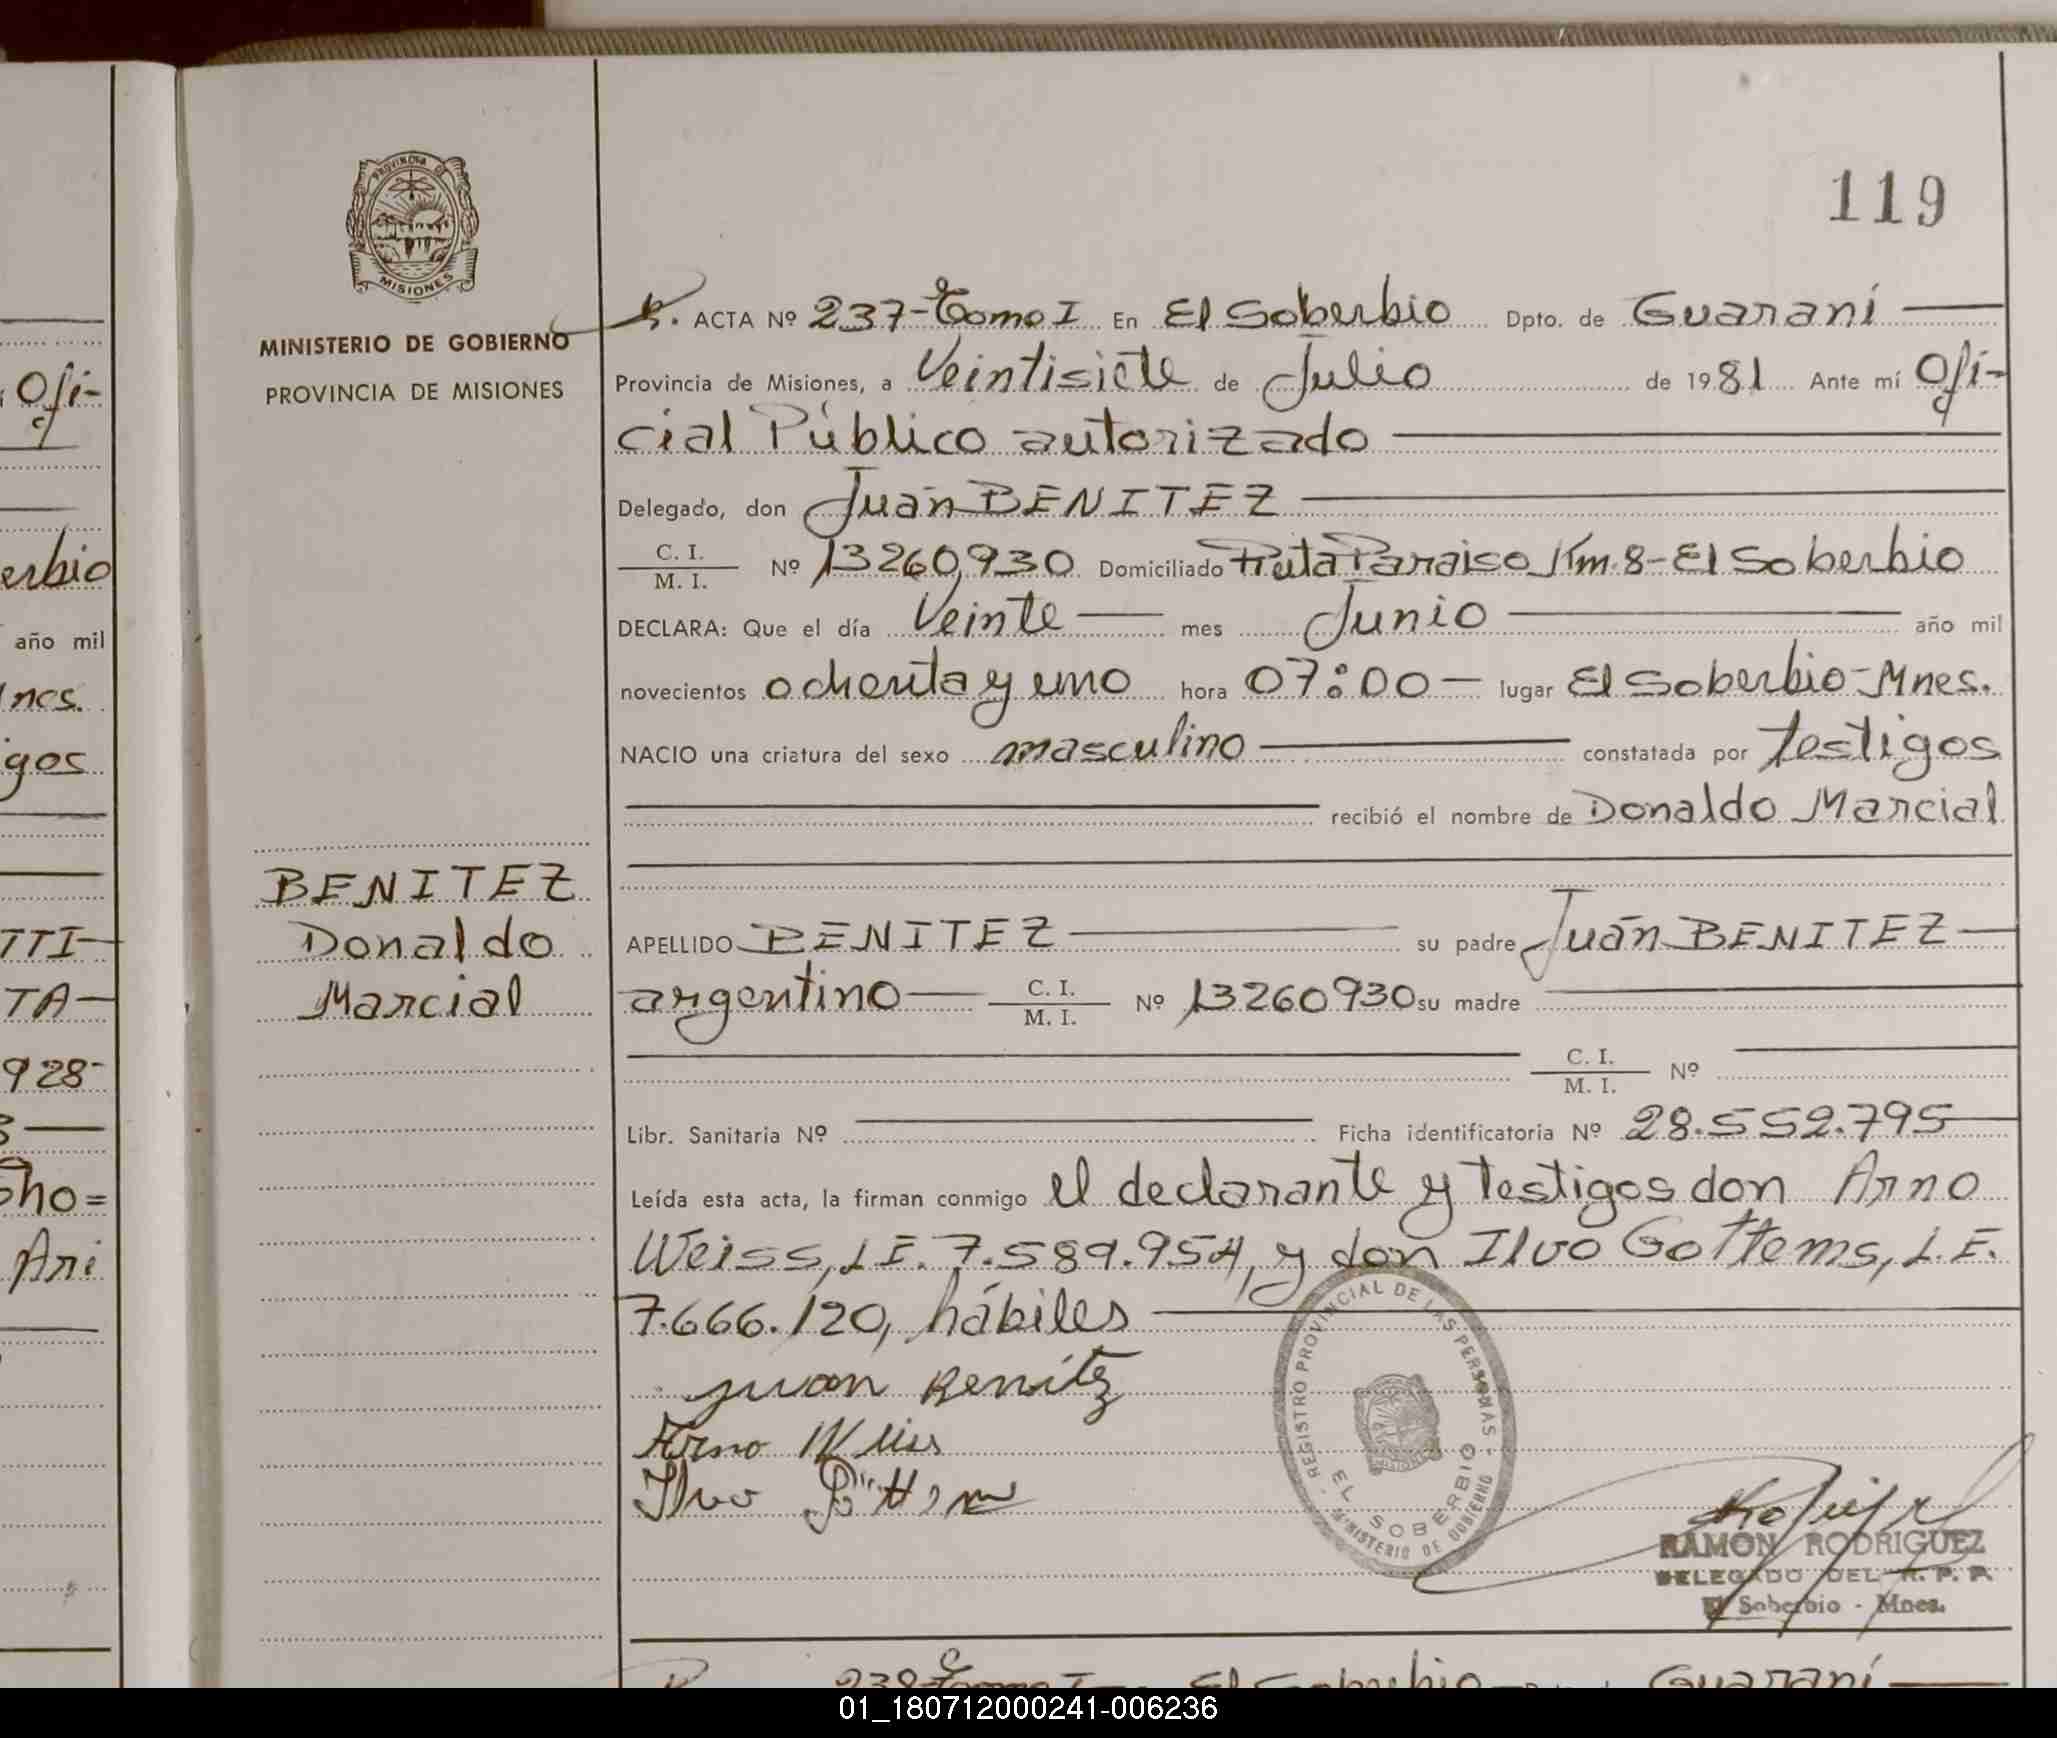 119
PROVINCIA DE
MISIONES
MINISTERIO DE GOBIERNO
PROVINCIA DE MISIONES
BENITEZ
Donaldo
Marcial
ACTA Nº 237-Tomo I En El Soberbio Dpto. de Guaraní
Provincia de Misiones, a Veintisiete de Julio de 1981 Ante mí Ofi-
cial Público autorizado
Delegado, don Juan BENITEZ
C. I.
M. I. Nº 13260,930 Domiciliado Ruta Paraiso Km. 8-El Soberbio
DECLARA: Que el día Veinte mes Junio año mil
novecientos ochenta y uno hora 07:00 lugar El Soberbio-Mnes.
NACIO una criatura del sexo masculino constatada por testigos
recibió el nombre de Donaldo Marcial
APELLIDO BENITEZ su padre Juan BENITEZ
argentino C. I.
M. I. Nº 13260930 su madre
C. I.
M. I. Nº
Libr. Sanitaria Nº Ficha identificatoria Nº 28.552.795
Leída esta acta, la firman conmigo el declarante y testigos don Arno
Weiss, L.E. 7.589.954, y don Ilvo Gottems, L.E.
7.666.120, hábiles
juan Benítez
Arno Weiss
Ilvo
REGISTRO PROVINCIAL DE LAS PERSONAS
EL SOBERBIO
MINISTERIO DE GOBIERNO
RAMON RODRIGUEZ
DELEGADO DEL R. P. P.
El Soberbio - Mnes.
238 Tomo I El Soberbio Guaraní
Ofi-
erbio
año mil
nes.
igos
TTI
TA
928
Ari
01_180712000241-006236